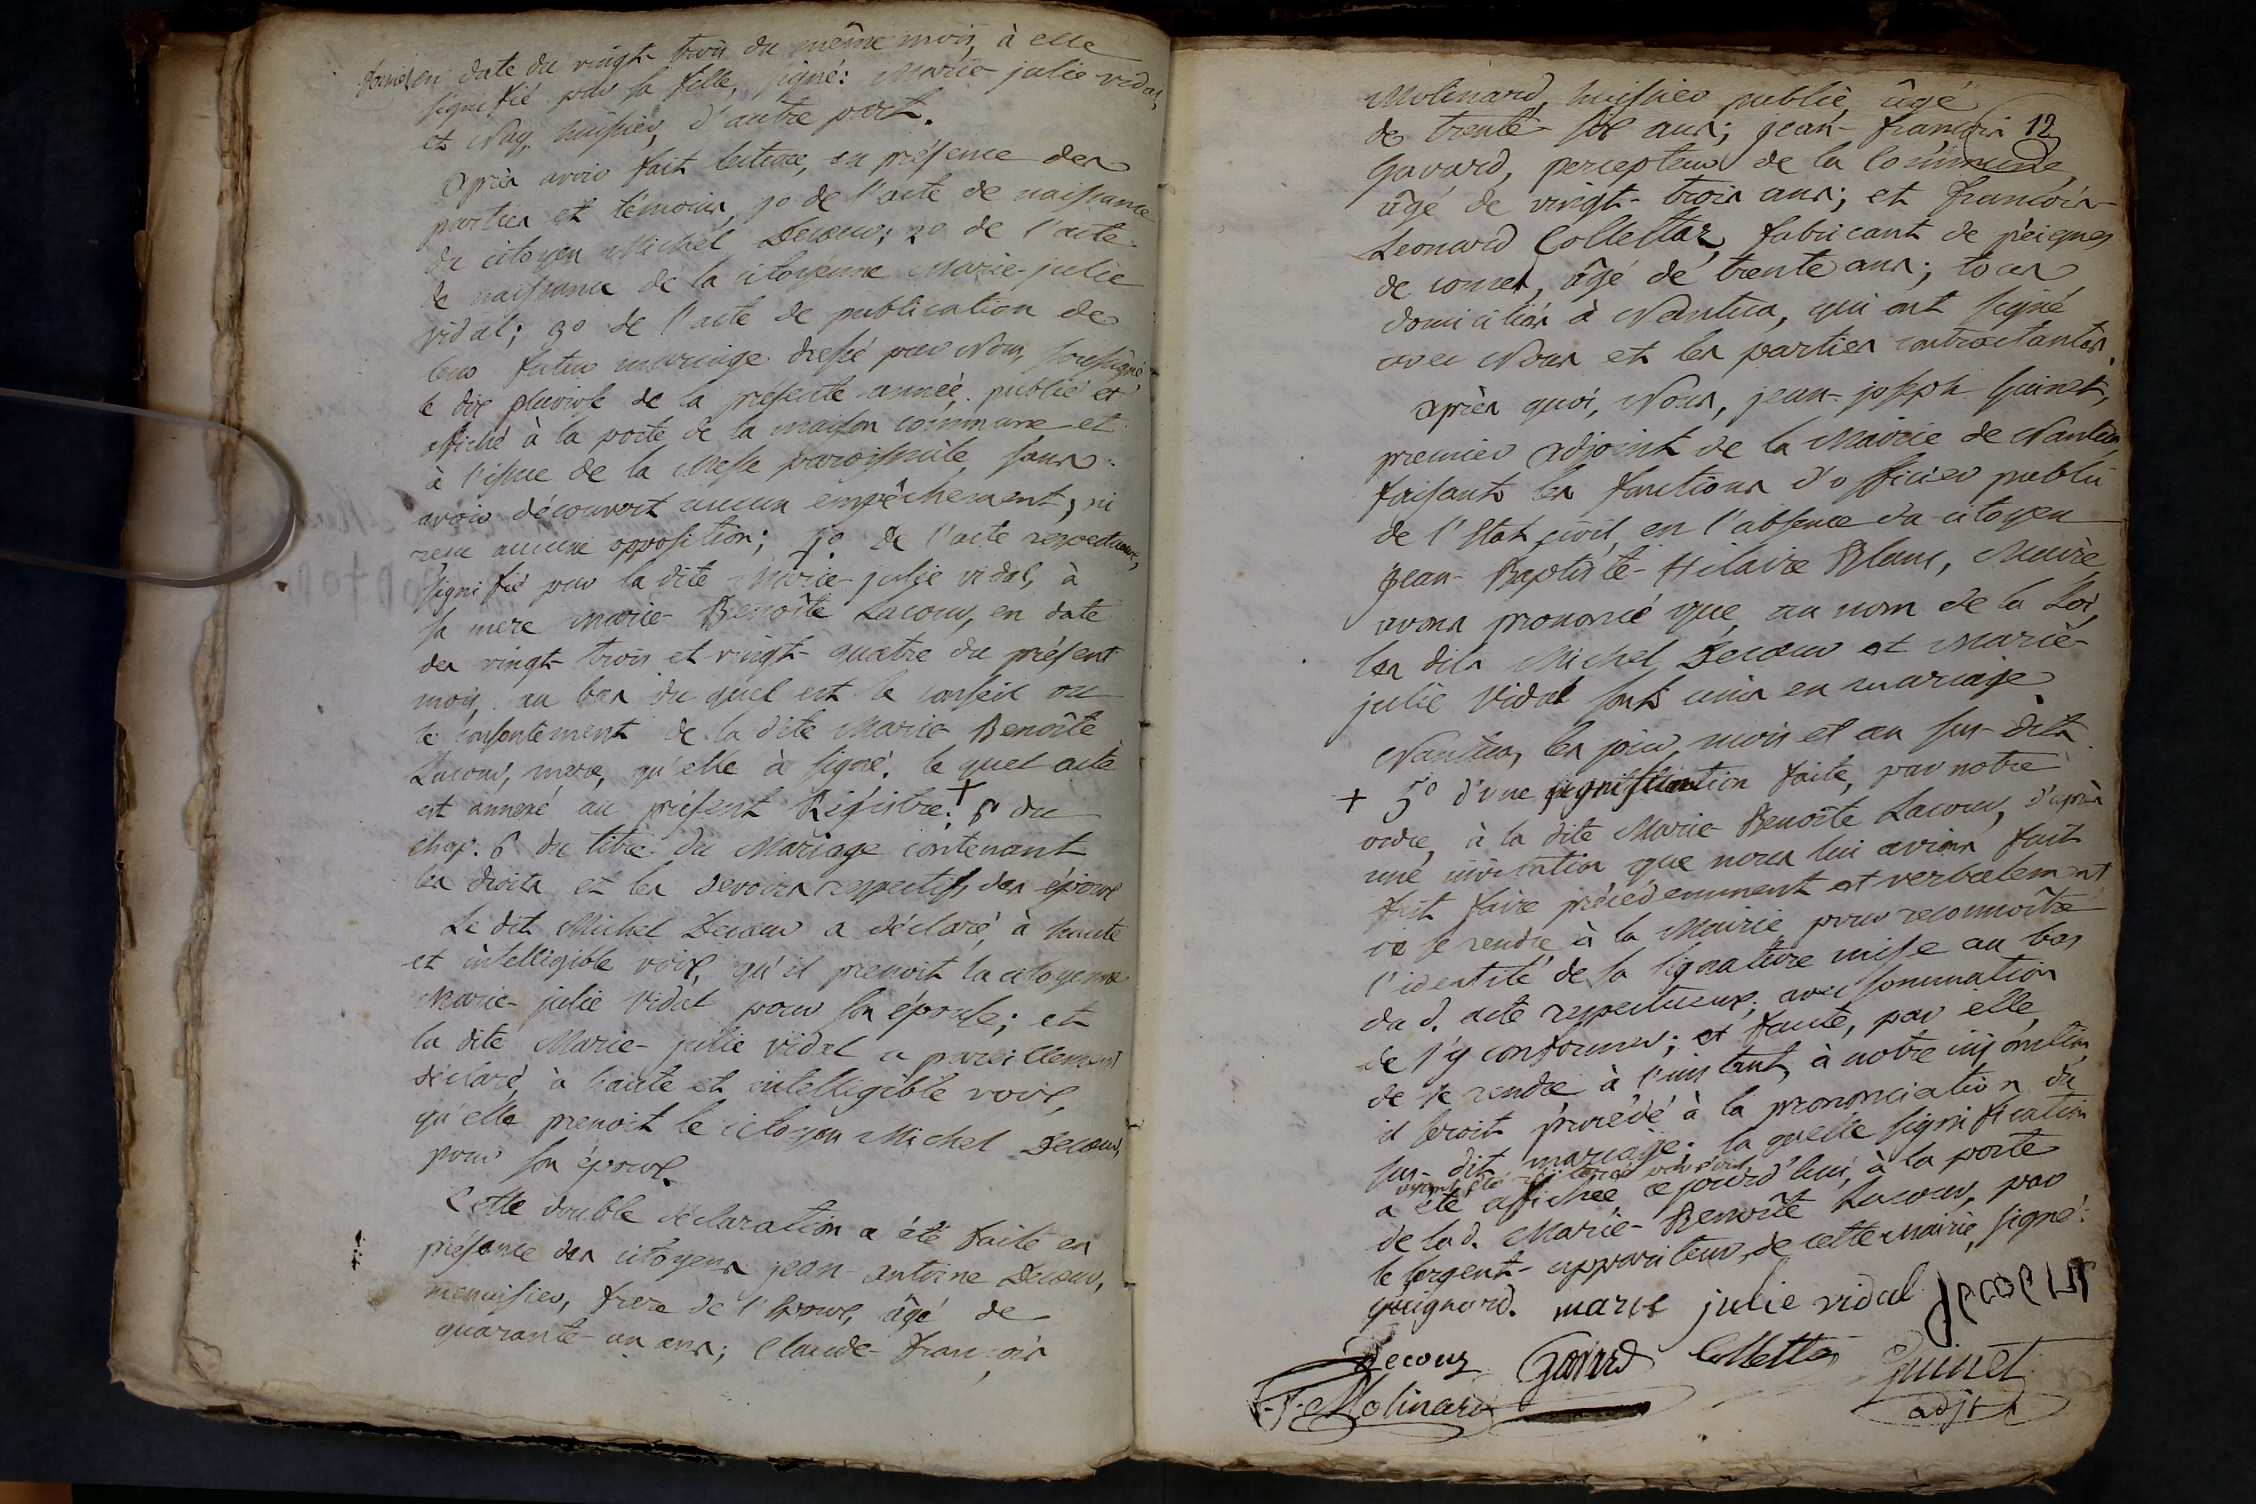 en date du vingt-trois du même mois, à elle
signifié par sa fille, signé: Marie-julie vidal,
et Nay, huissier, d'autre part.
Après avoir fait lecture, en présence des
parties et témoins, 1º de l'acte de naissance
du citoyen Michel Decœur; 2º de l'acte
de naissance de la citoyenne Marie-julie
vidal; 3º de l'acte de publication de
leur futur mariage dressé par Nous, soussigné
le dix pluviose de la présente année, publié et
affiché à la porte de la maison commune et
à l'issue de la Messe paroissiale, sans
avoir découvert aucun empêchement, ni
reçu aucune opposition; 4º de l'acte respectueux,
signifié par la dite Marie-julie vidal, à
sa mere Marie-Benoîte Lacour, en date
des vingt-trois et vingt-quatre du présent
mois, au bas du quel est le conseil ou
le consentement de la dite Marie Benoîte
Lacour, mere, qu'elle à signé, le quel acte
est annexé au présent Régistre; + 6º du
chap. 6 du titre du Mariage contenant
les droits et les devoirs respectifs des époux
Le dit Michel Decœur a déclaré, à haute
et intelligible voix, qu'il prenoit la citoyenne
Marie-julie Vidal pour son épouse; et
la dite Marie-julie vidal a pareillement
déclaré, à haute et intelligible voix,
qu'elle prenoit le citoyen Michel Decœur,
pour son époux.
Cette double déclaration a été faite en
présence des citoyens jean-antoine Decœur,
menuisier, frere de l'Epoux, âgé de
quarante-un ans; Claude-François
Molinard, huissier public, âgé
de trente-six ans; jean-françois 12
Gavard, percepteur de la Commune,
âgé de vingt-trois ans; et françois-
Leonard Collettaz, fabricant de peignes
de corne, âgé de trente ans; tous
domiciliés à Nantua, qui ont signé
avec Nous et les parties contractantes.
Après quoi, Nous, jean-joseph Guinet,
premier adjoint de la Mairie de Nantua,
faisant les fonctions d'officier public
de l'Etat civil, en l'absence du citoyen
Jean-Baptiste-Hilaire Blanc, Maire
avons prononcé que, au nom de la Loi,
les dits Michel Decœur et Marie-
julie Vidal sont unis en mariage
Nantua, les jour, mois et an sus-dits.
+ 5º d'une signification faite, par notre
ordre, à la dite Marie-Benoîte Lacour, d'après
une invitation que nous lui avions fait
fait faire précédemment et verbalement
de se rendre à la Mairie pour reconnoître
l'identité de sa signature mise au bas
du d. acte respectueux, avec sommation
de s'y conformer; et faute, par elle,
de se rendre à l'instant, à notre injonction,
il seroit procédé à la prononciation du
sus-dit mariage: la quelle signification
a été affichée ce jourd'hui, à la porte
de lad. Marie-Benoîte Lacour, par
le sergent-appariteur de cette mairie, signé:
Guignard. marie julie vidal Decoeur
Decour Gavard Collettaz Guinet
F. Molinard adjt